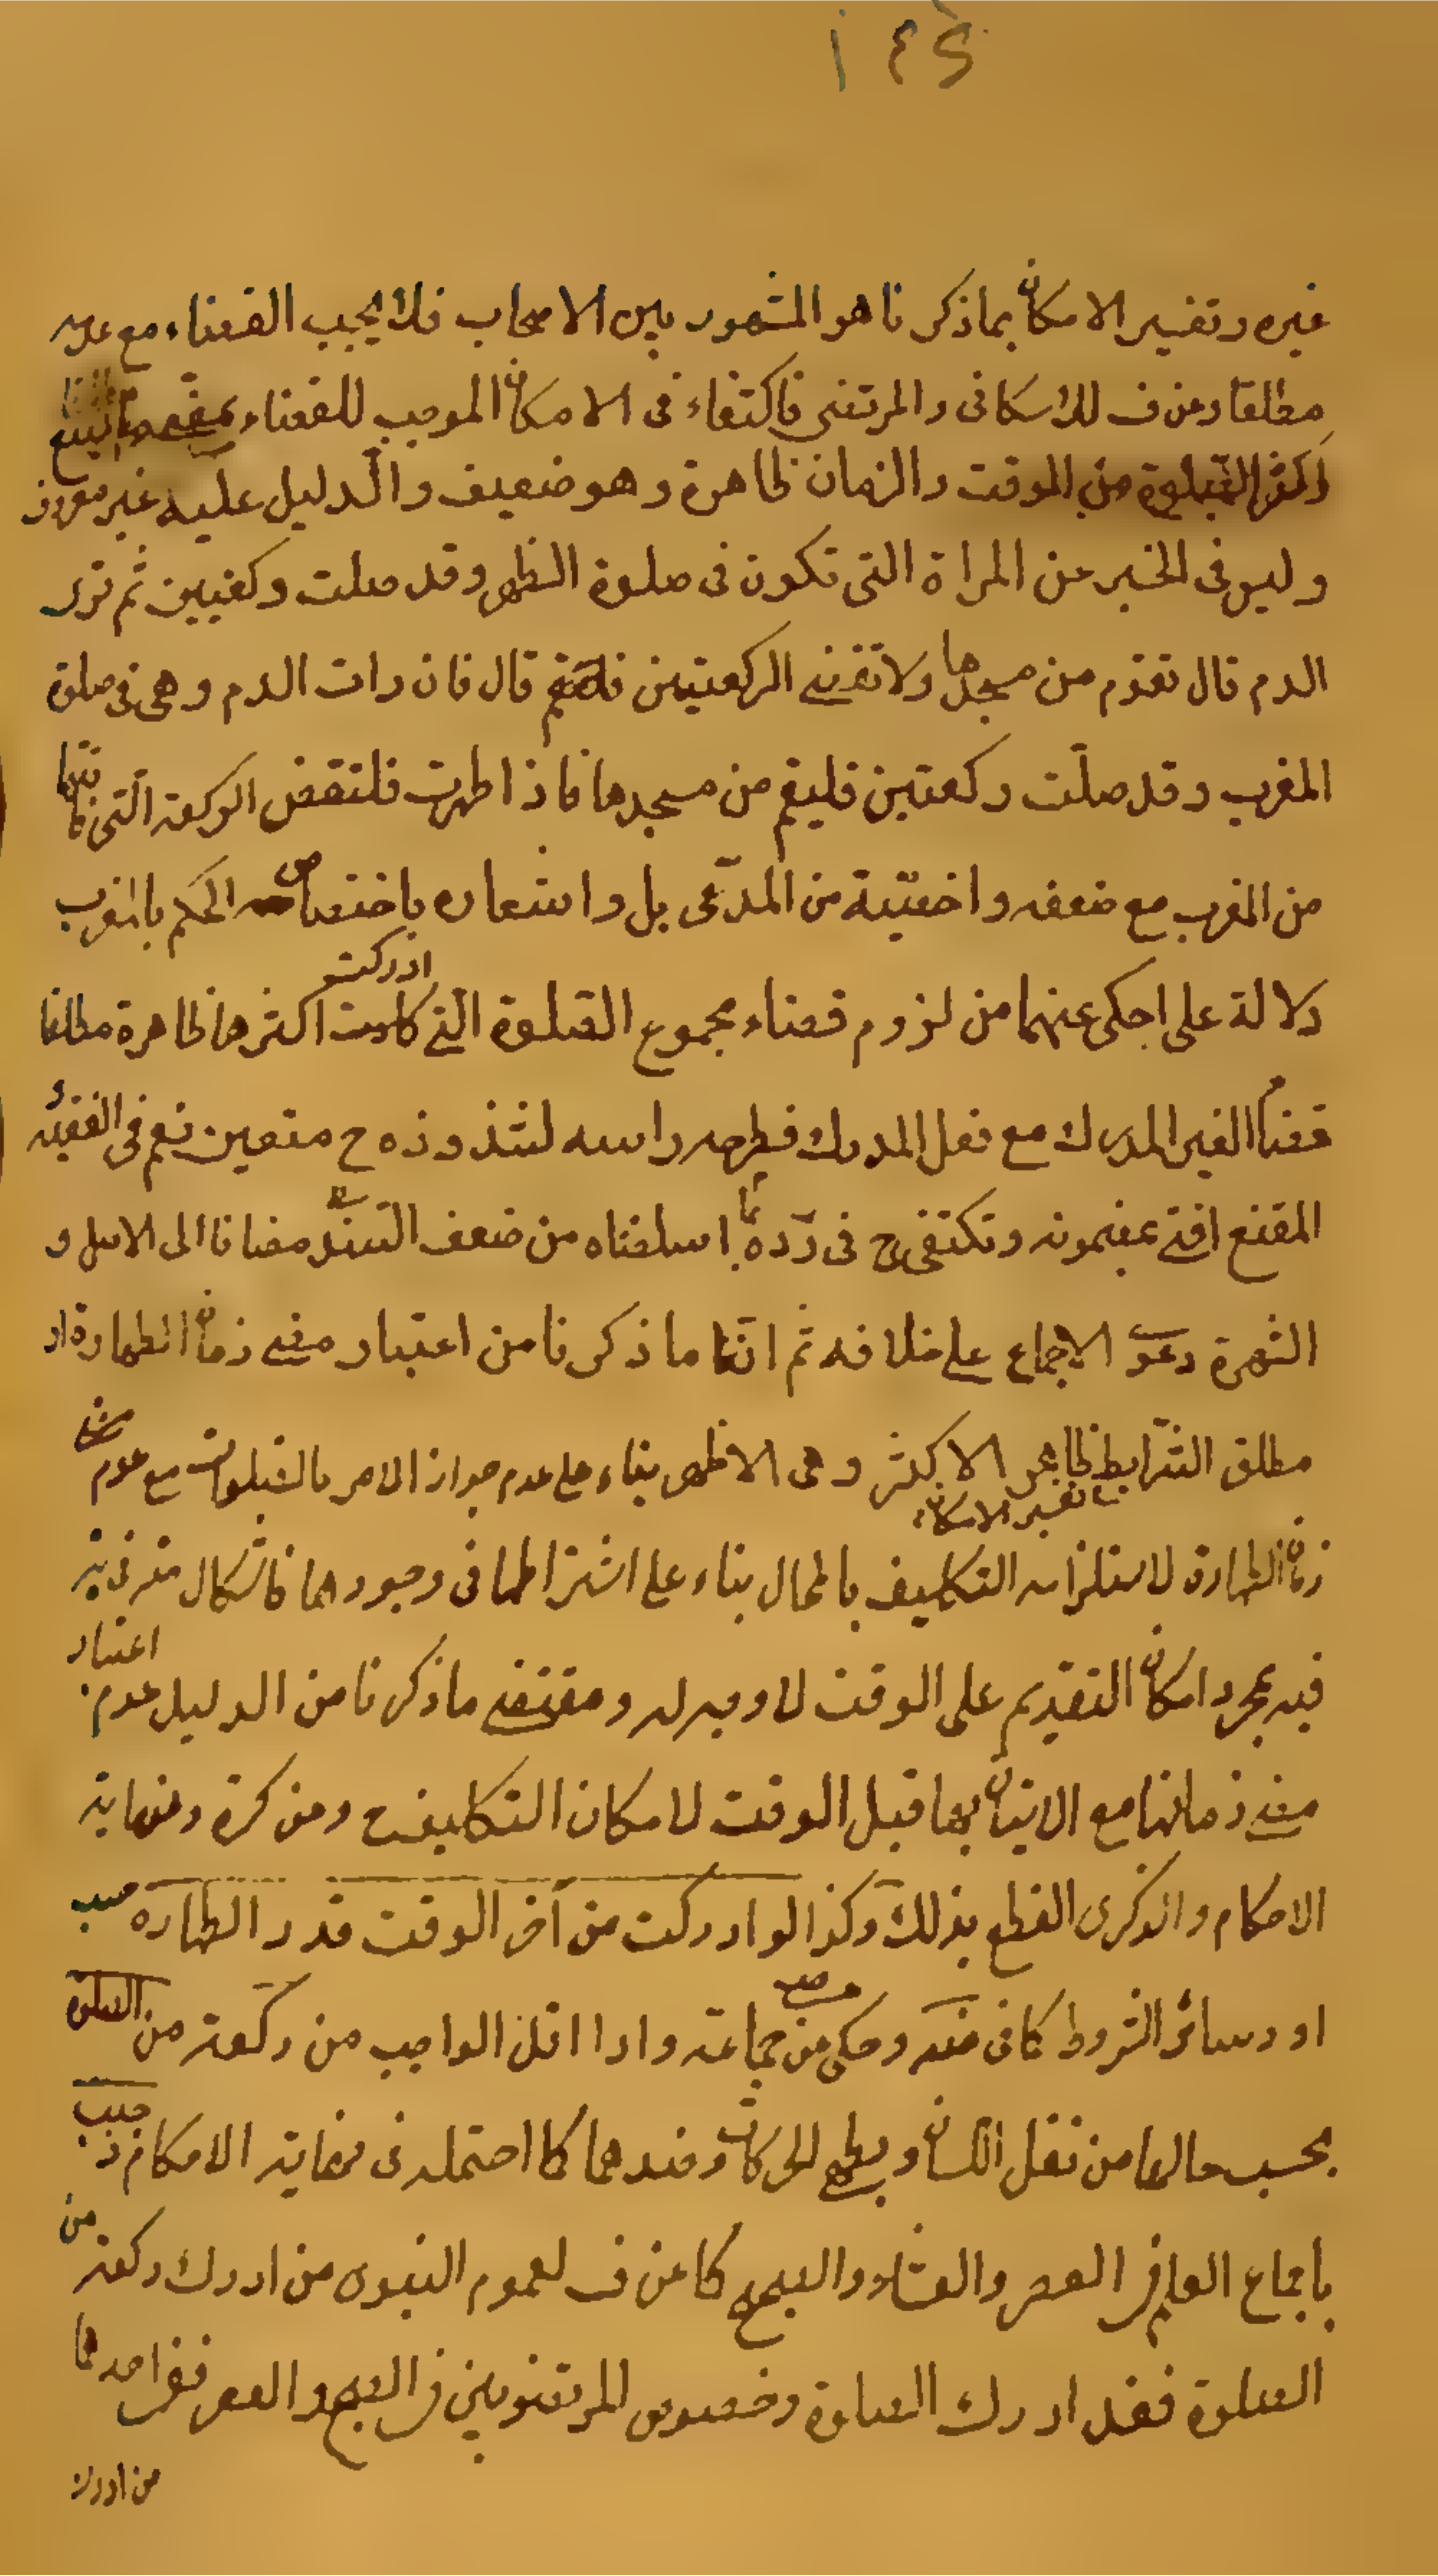 غيره وتفسير الامكان بما ذكرنا هو المشهور بين الاصحاب فلا يجب القضاء مع عدمه
مطلقا وعن ف للاسكافى والمرتضى فاكتفاء فى الامكان الموجب للقضاء بمضى ما يسع
اكثر الصلوة من الوقت والزمان ظاهرة وهو ضعيف والدليل عليه غير معروف
وليس فى الخبر عن المراة التى تكون فى صلوة الظهر وقد صلت ركعتين ثم ترى
الدم قال تقوم من مسجدها ولا تقضى الركعتين قال فان رات الدم وهى فى صلوة
المغرب وقد صلّت ركعتين فليقم من مسجدها فاذا طهرت فلتقض الركعة التى فاتتها
من المغرب مع ضعفه واخصيّة من المدّعى بل واشعاره باختصاص الحكم بالمغرب
دلالة على احكى عنهما من لزوم قضاء مجموع الصلوة التى ادركت اكثرها ظاهرة مطلقا
قضاء الغير المدرك مع فعل المدرك فطرحه راسه لشذوذه ح متعين نعم فى الفقيه و
المقنع افتى بمضمونه وتكتفى ح فى ردّه بما اسلفناه من ضعف السند مضافا الى الاصل و
الشهرة دعوى الاجماع على خلافه ثم انّ ما ذكرنا من اعتبار مضى زمان الطهارة او
مطلق الشرايط فى تفسير الامكان ظاهر الاكثر وهى الاظهر بناء على عدم جواز الامر بالصلوات مع عدم مضى
زمان الطهارة لاستلزامه التكليف بالمحال بناء على اشتراطها فى وجودهما فاشكال
فيه بمجرد امكان التقديم على الوقت لا وجه له ومقتضى ما ذكرنا من الدليل عدم اعتبار
مضى زمانها مع الاتيان بها قبل الوقت لامكان التكليف ح وعن كرة ونهاية
الاحكام والذكرى القطع بذلك وكذا لو ادركت من آخر الوقت قدر الطهارة حسب
او وسائر الشروط كما فى ضه وحكى عن جماعة واداء اقل الواجب من ركعة من الصلوة
بحسب حالها من ثقل اللسان وبطئ الحركات وضدهما كما احتمله فى نهاية الاحكام وجبت
باجماع العلم فى العصر والعشاء والصبح كما عن ف لعموم النبوى من ادرك ركعة من
الصلوة فقد ادرك الصلوة وخصوص المرتضويين فى الصبح والعصر ففى احدهما
من ادرك